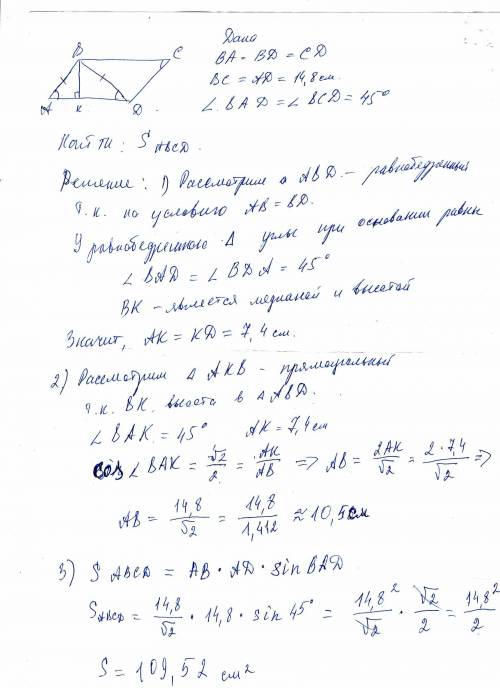 B C
A K D
Дано
BA = BD = CD
BC = AD = 14,8 см.
∠BAD = ∠BCD = 45°
Найти: S ABCD.
Решение: 1) Рассмотрим △ ABD. – равнобедренный
т.к. по условию AB = BD.
У равнобедренного △ углы при основании равны
∠BAD = ∠BDA = 45°
BK – является медианой и высотой
Значит, AK = KD = 7,4 см.
2) Рассмотрим △ AKB – прямоугольный
т.к. BK высота в △ ABD.
∠BAK = 45° AK = 7,4 см
cos ∠BAK = √2/2 = AK/AB => AB = 2AK/√2 = 2·7,4/√2 =>
AB = 14,8/√2 = 14,8/1,412 ≈ 10,5 см
3) S ABCD = AB · AD · sin BAD
S ABCD = 14,8/√2 · 14,8 · sin 45° = 14,8²/√2 · √2/2 = 14,8²/2
S = 109,52 см²